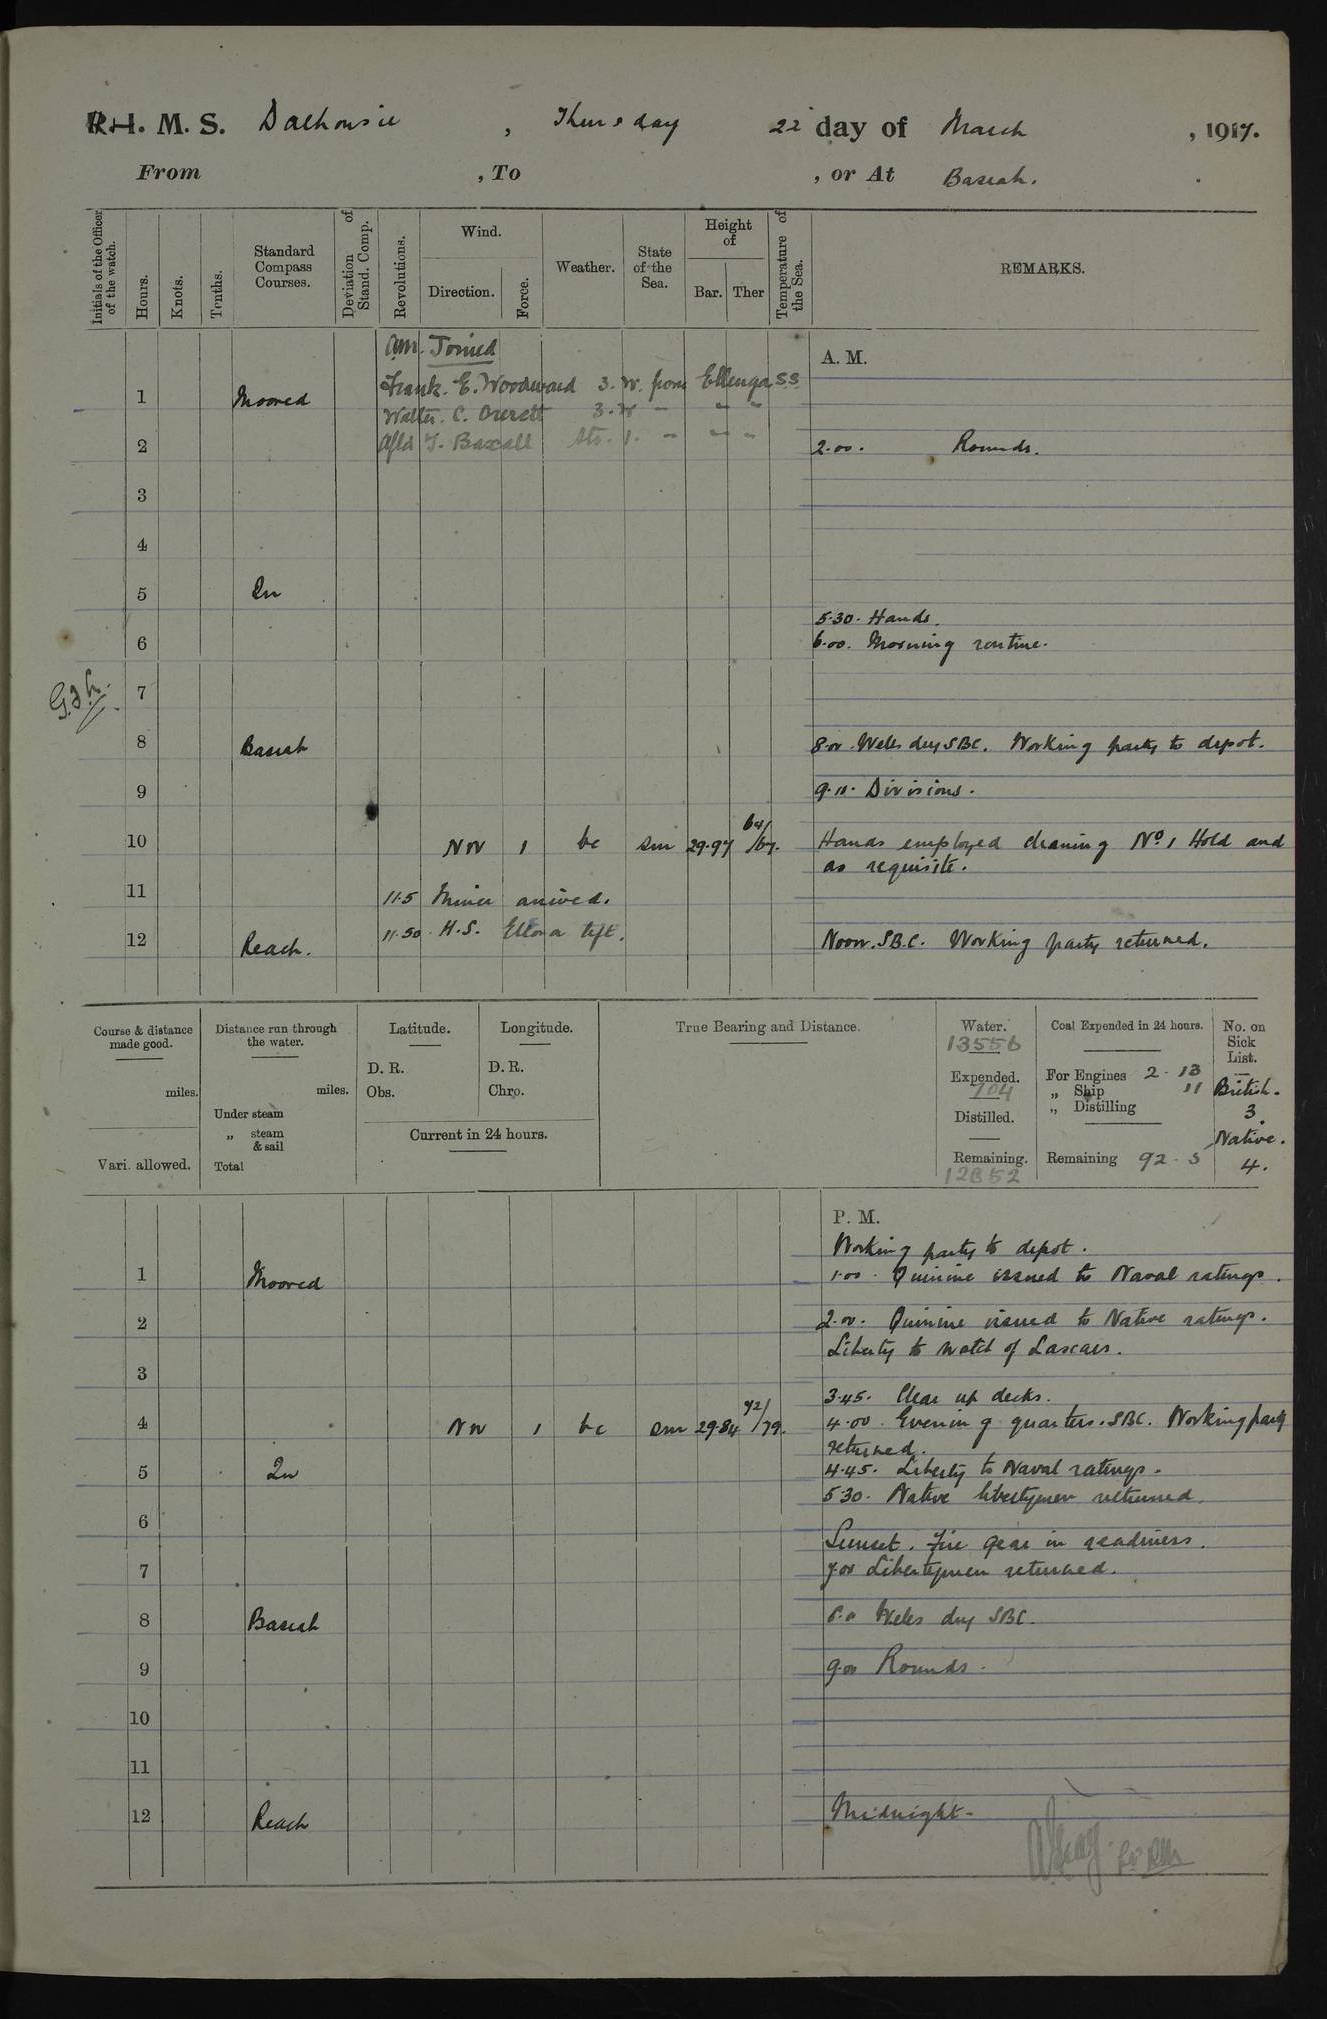 H. M. S. Dalhousie, Thursday 22 day of March, 1917.
From , To , or At Basrah.
Initials of the Officer of the watch.
Hours.
Knots.
Tenths.
Standard Compass Courses.
Deviation of Stand. Comp.
Revolutions.
Wind.
Direction.
Force.
Weather.
State of the Sea.
Height of
Bar. Ther
Temperature of the Sea.
REMARKS.
Joined
A. M.
Frank. E. Woodward 3.W. from Ellenga S.S.
1 Moored
Walter. C. 3.W - " "
2 T. Baxall Sto. 1. - " " 2.00. Rounds.
3
4
5 In
5.30. Hands.
6 6.00. Morning routine.
7
8 Basrah 8.00. Weles dey SBC. Working party to depot.
9 9.10. Divisions.
10 NW 1 bc sm 29.97 64/67. Hands employed cleaning No. 1 Hold and
as requisite.
11 11.5 Miner arrived.
12 Reach. 11.50. H.S. Ellora left. Noon. SBC. Working party returned.
Course & distance made good.
miles.
Vari. allowed.
Distance run through the water.
miles.
Under steam
„ steam & sail
Total
Latitude.
D. R.
Obs.
Longitude.
D. R.
Chro.
Current in 24 hours.
True Bearing and Distance.
Water.
13556
Expended.
704
Distilled.
Remaining.
12852
Coal Expended in 24 hours.
For Engines 2 - 13
„ Ship 11
„ Distilling
Remaining 92 - 5
No. on Sick List.
British.
3.
Native.
4.
P. M.
Working party to depot.
1 Moored 1.00. Quinine issued to Naval ratings.
2 2.00. Quinine issued to Native ratings.
Liberty to watch of Lascars.
3
3.45. Clear up decks.
4 NW 1 bc sm 29.84 72/79. 4.00. Evening quarters. SBC. Working party
returned.
5 In 4.45. Liberty to Naval ratings.
5.30. Native libertymen returned.
6
Sunset. Fire gear in readiness.
7 7.00 Libertymen returned.
8 Basrah 8.0 Weles dey SBC.
9 9.00 Rounds.
10
11
12 Reach Midnight-